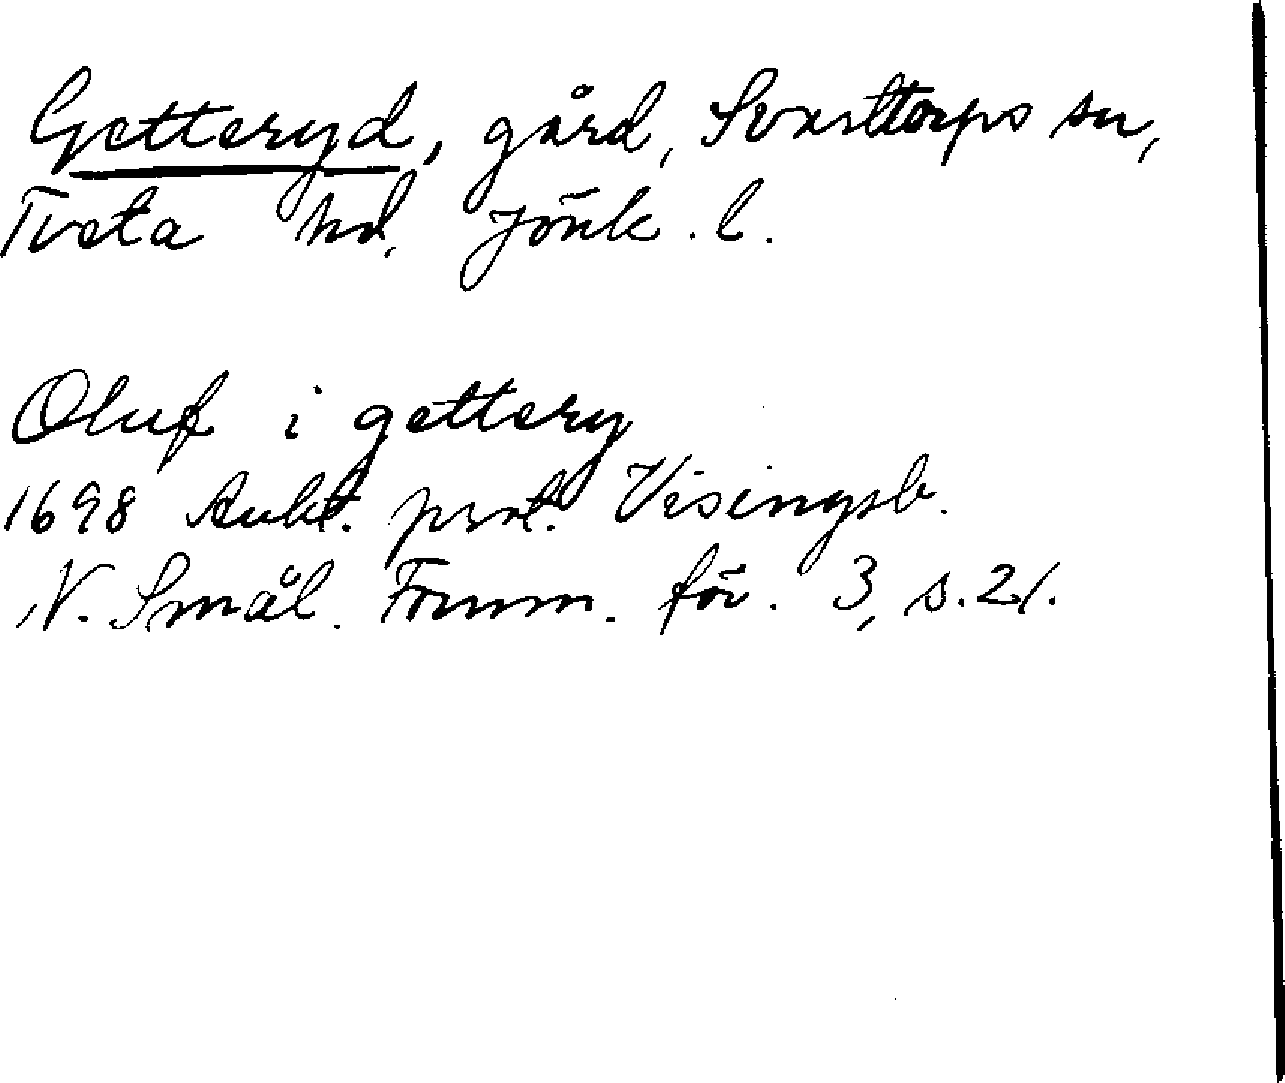 Getteryd, gård, Svarttorps sn,
Tveta hd, Jönk. l.
Oluf i gettery
1698 Aukt. prot. Visingsb.
N. Smål. Fornm. för. 3, s. 21.